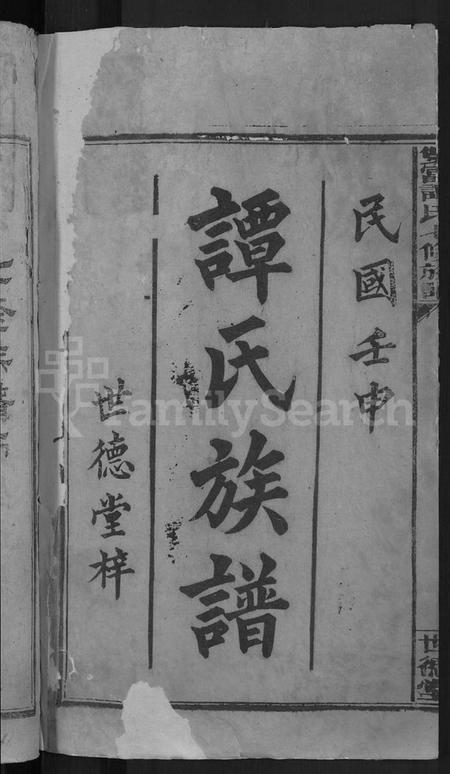 民國壬申
譚氏族譜
世德堂梓
譚氏
修族譜
世德堂
FamilySearch